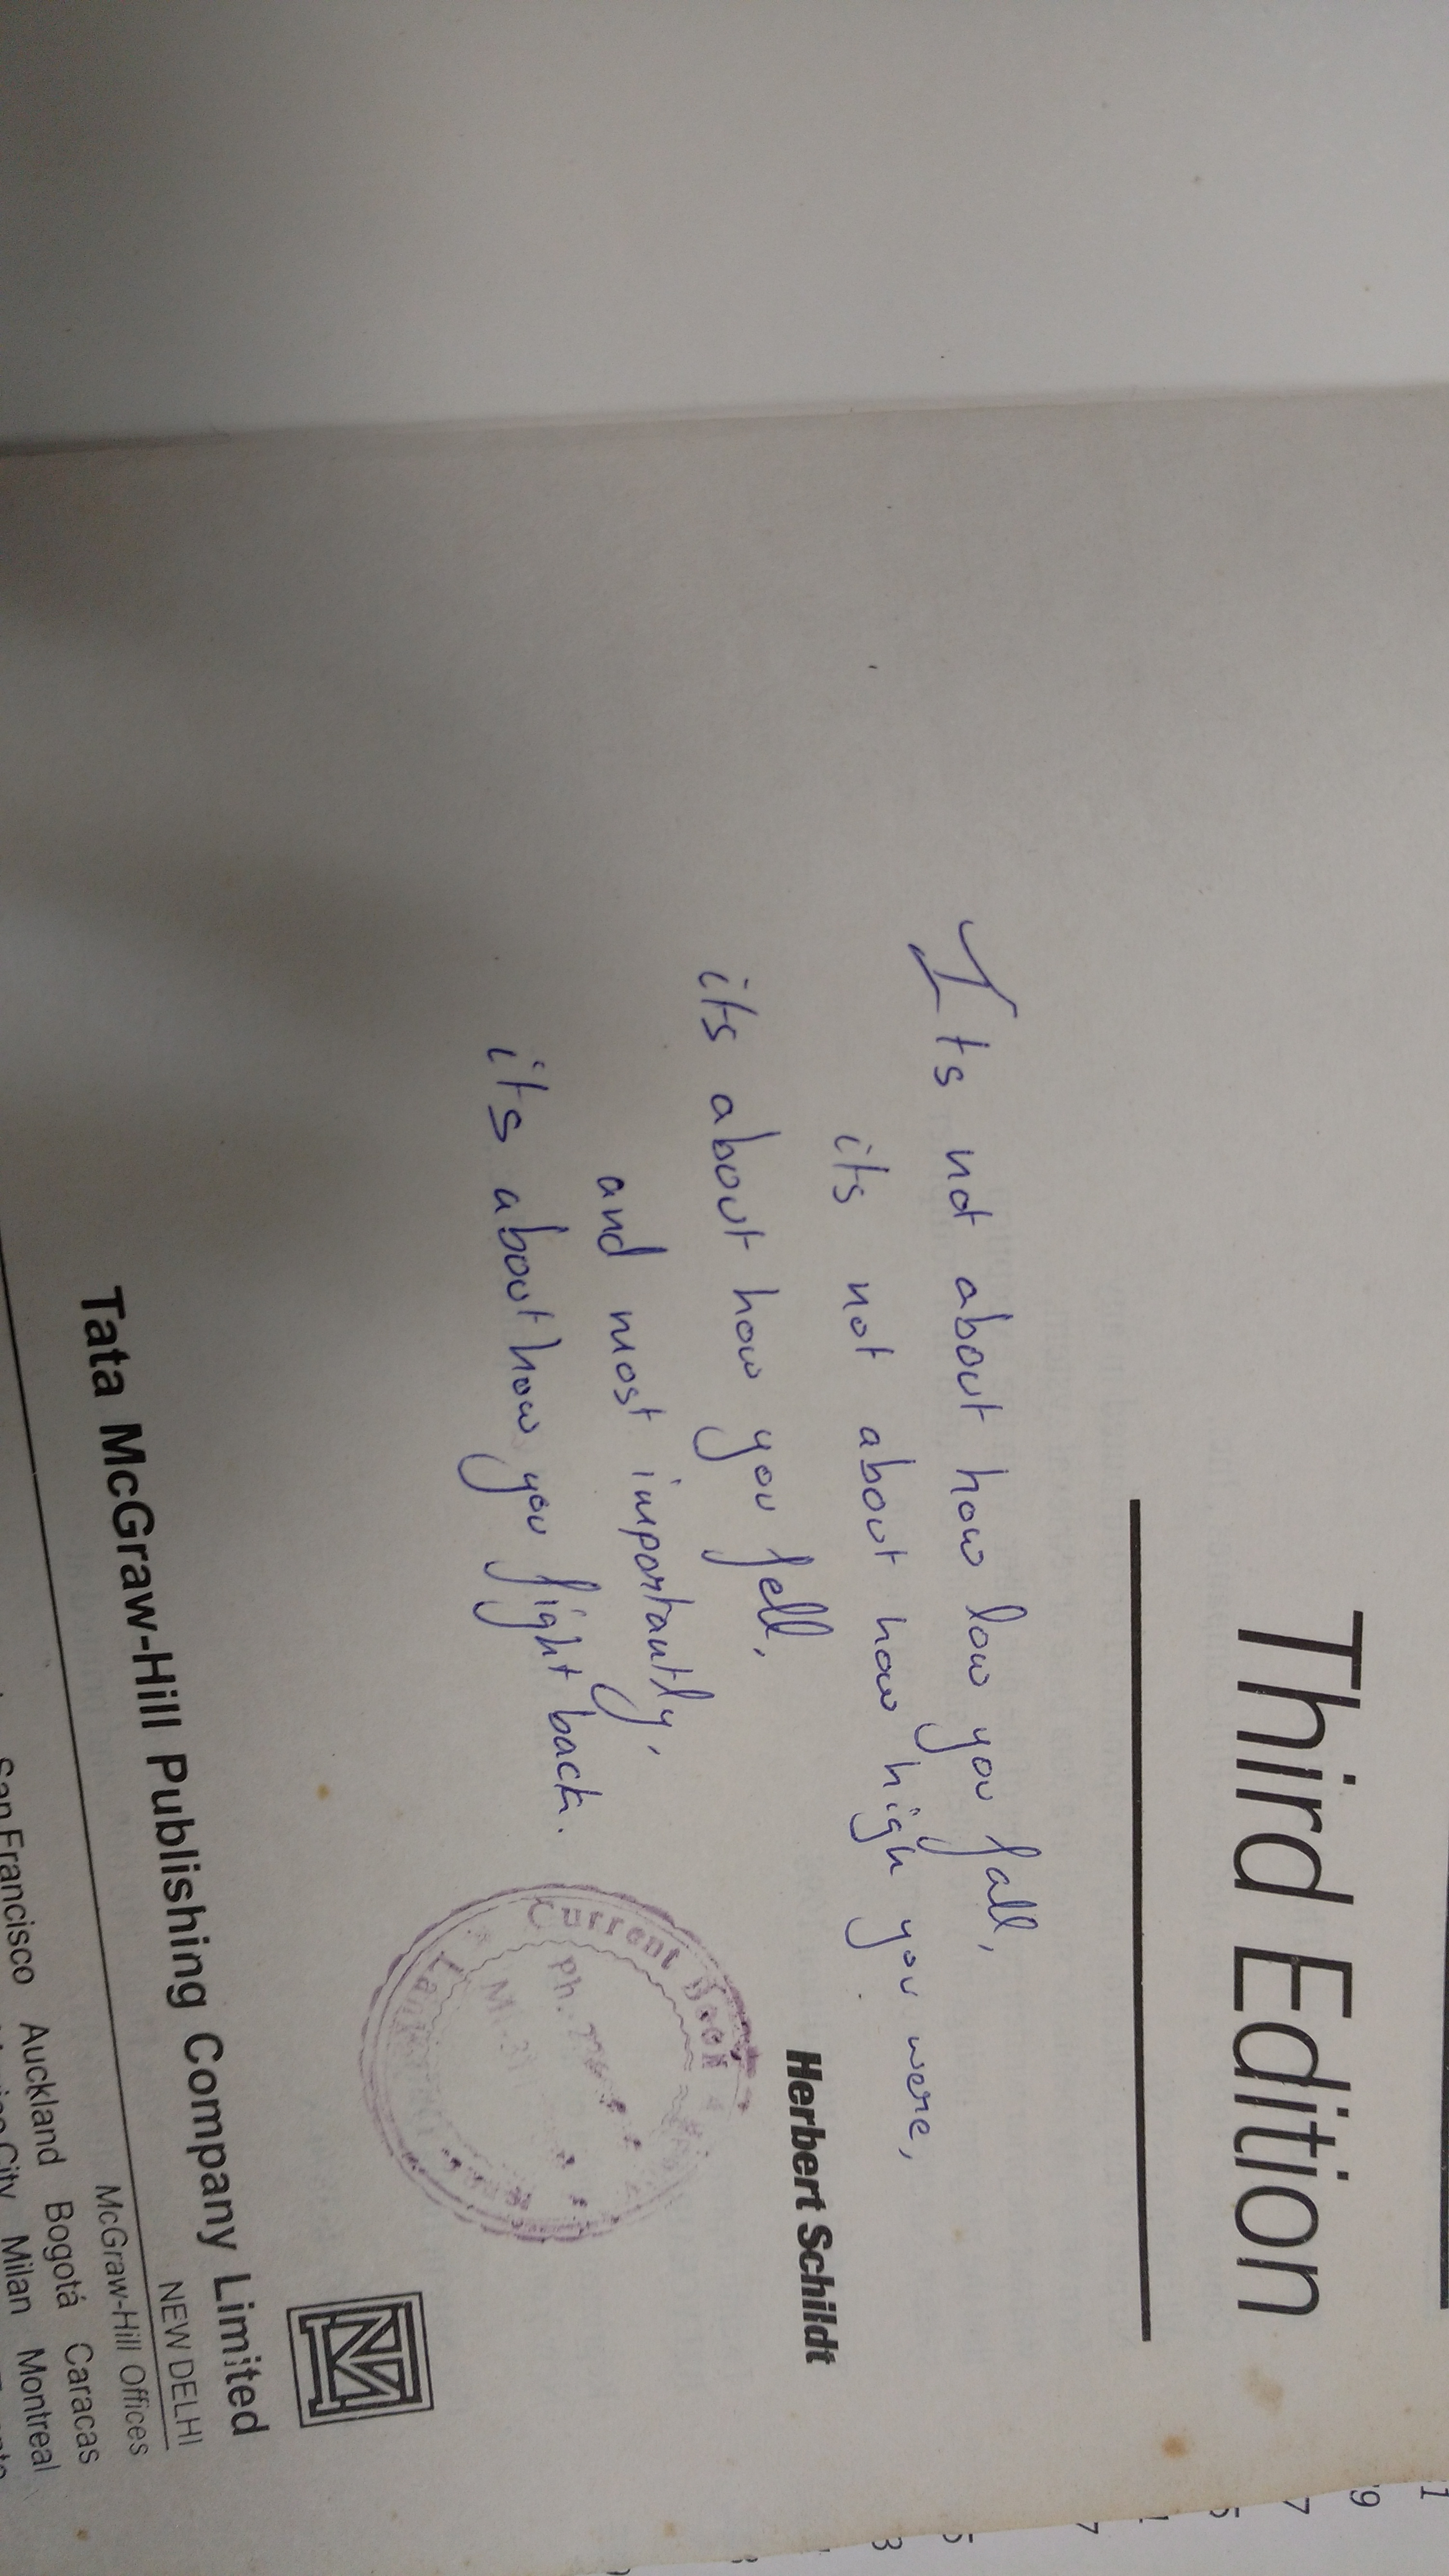 Third Edition
Its not about how low you fall,
its not about how high you were,
Herbert Schildt
its about how you fell,
and most importantly,
its about how you fight back.
Current Book
Ph.
Tata McGraw-Hill Publishing Company Limited
NEW DELHI
McGraw-Hill Offices
San Francisco Auckland Bogotá Caracas
City Milan Montreal